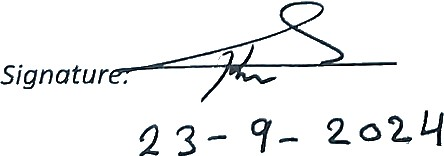 Signature:
23-9-2024